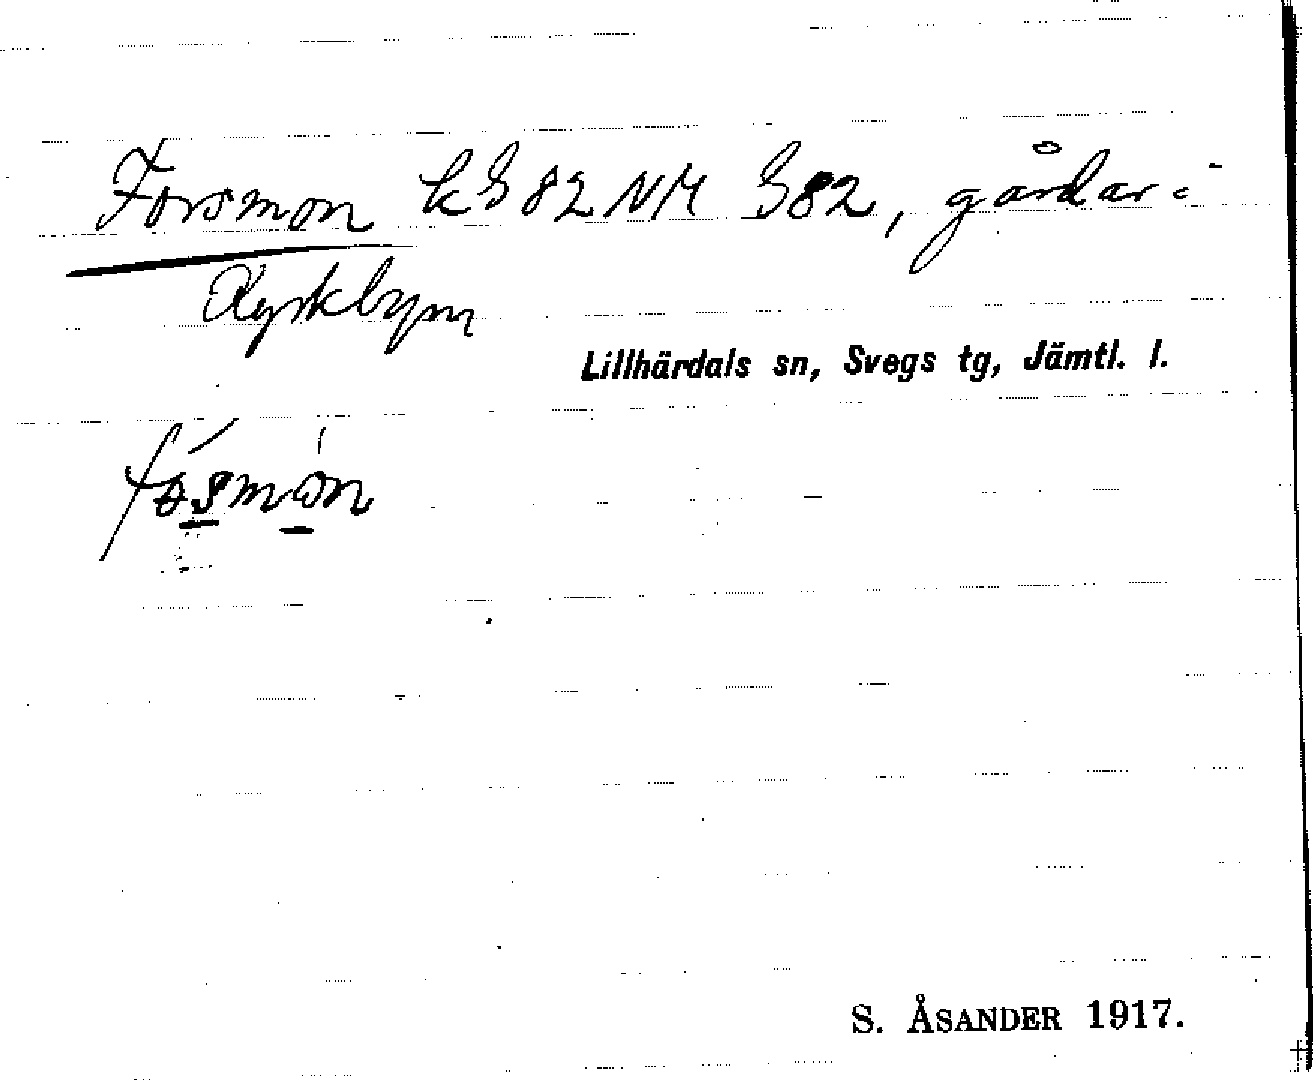 Forsmon k G 82 NM G82, gårdar i
Kyrkbyn
Lillhärdals sn, Svegs tg, Jämtl. l.
fósmón
S. ÅSANDER 1917.